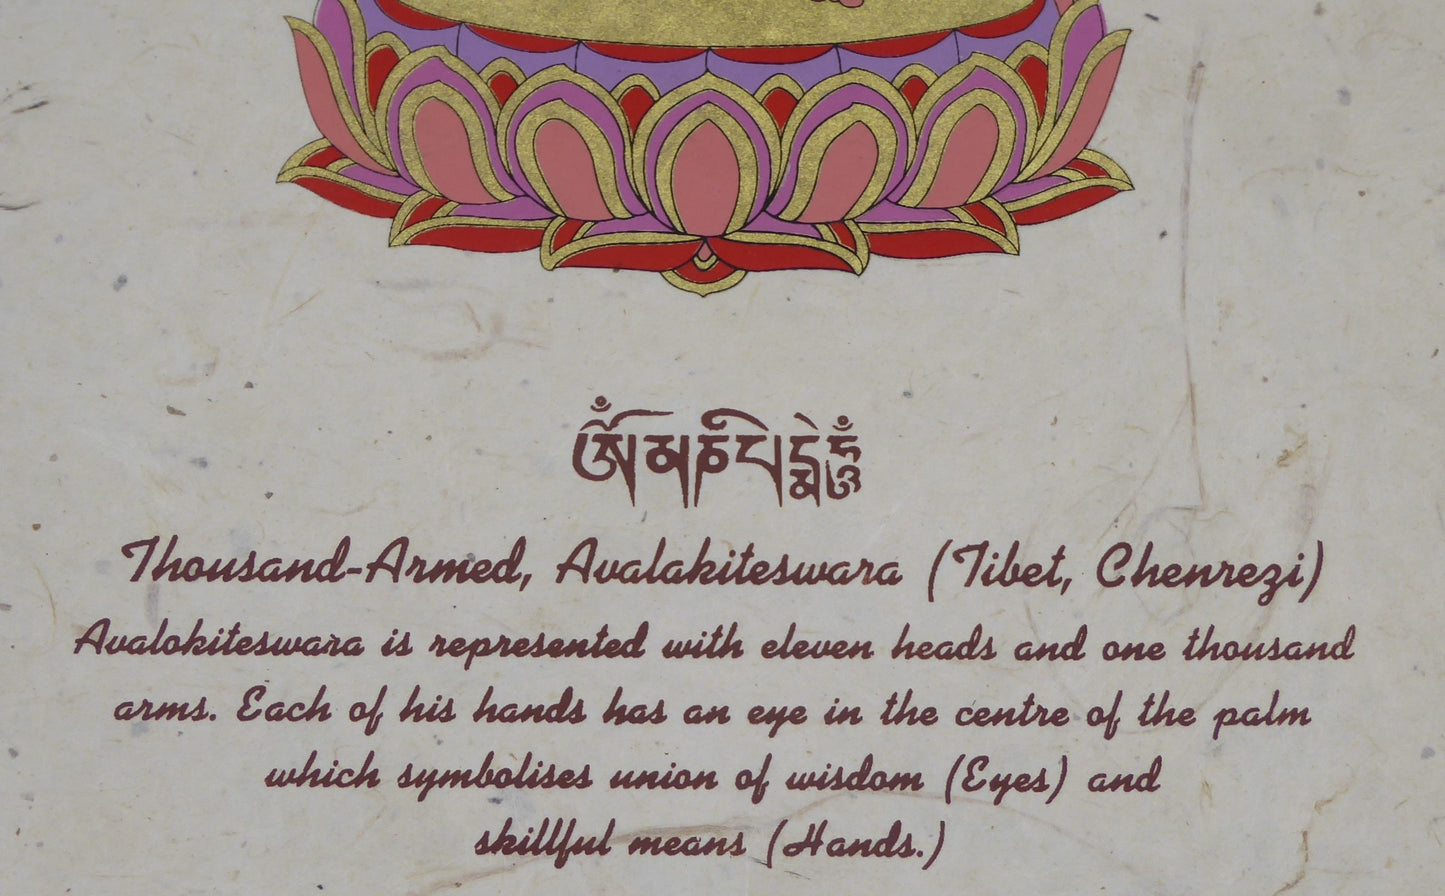 ༀམཎིཔདྨེཧཱུྃ
Thousand-Armed, Avalakiteswara (Tibet, Chenrezi)
Avalokiteswara is represented with eleven heads and one thousand
arms. Each of his hands has an eye in the centre of the palm
which symbolises union of wisdom (Eyes) and
skillful means (Hands.)